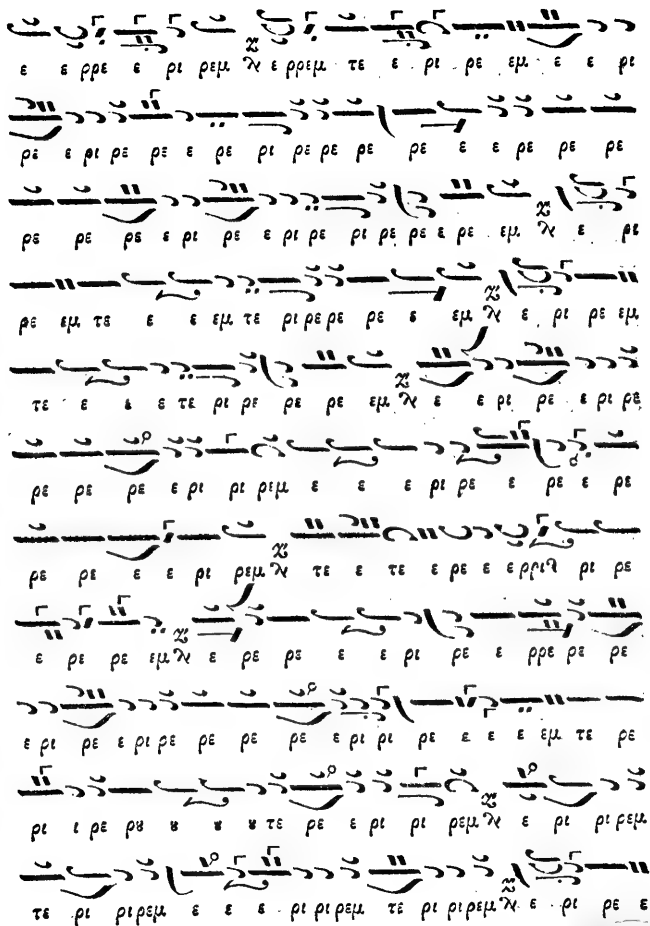 ε ε ρρε ε ρι ρεμ ε ρρεμ τε ε ρι ρε εμ ε ε ρι
ρε ε ρι ρε ρε ε ρε ρι ρε ρε ρε ρε ε ε ρε ρε ρε
ρε ρε ρε ε ρι ρε ε ρι ρε ρι ρε ρε ε ρε εμ ε ρι
ρε εμ τε ε ε εμ τε ρι ρε ρε ρε ε εμ ε ρι ρε εμ
τε ε ε ε τε ρι ρε ρε ρε εμ ε ε ρι ρε ε ρι ρε
ρε ρε ρε ε ρι ρι ριμ ε ε ε ρι ρε ε ρε ε ρε
ρε ρε ε ε ρι ρεμ τε ε τε ε ρε ε ε ρι ρε
ε ρε ρε εμ ε ρε ρε ε ε ρι ρε ε ρρε ρε ρε
ε ρι ρε ε ρι ρε ρε ρε ρε ε ρι ρι ρε ε ε ε εμ τε ρε
ρι ι ρε ρȣ ȣ ȣ ȣ τε ρε ε ρι ρι ρεμ ε ρι ρι ρεμ
τε ρι ρι ρεμ ε ε ε ρι ρι ρεμ τε ρι ρι ρεμ ε ρι ρε ε